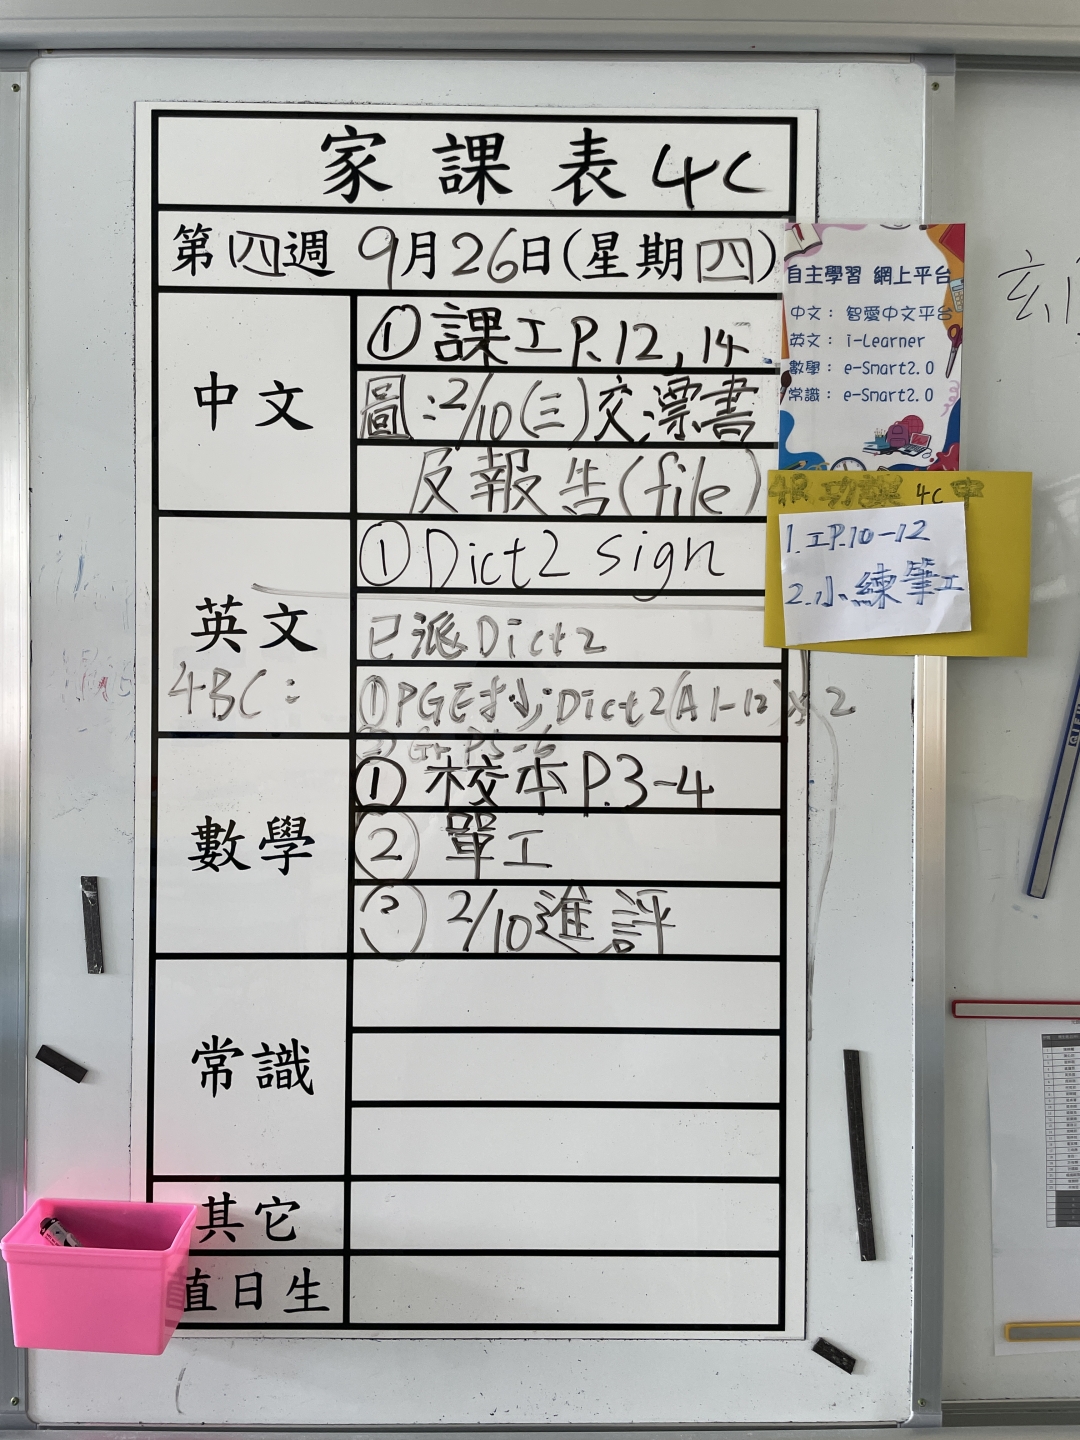 家課表 4C
第四週 9月26日(星期四)
中文
①課工P.12,14
圖:2/10(三)交漂書
及報告(file)
英文
①Dict2 sign
已派Dict2
4BC:
①PGE抄Dict2(A1-12)x2
② Gr P5-6
數學
① 校本P.3-4
② 單工
2/10進評
常識
其它
直日生
自主學習 網上平台
中文： 智愛中文平台
英文： i-Learner
數學： e-Smart2.0
常識： e-Smart2.0
功課 4C 中
1.工P.10-12
2.小練筆工